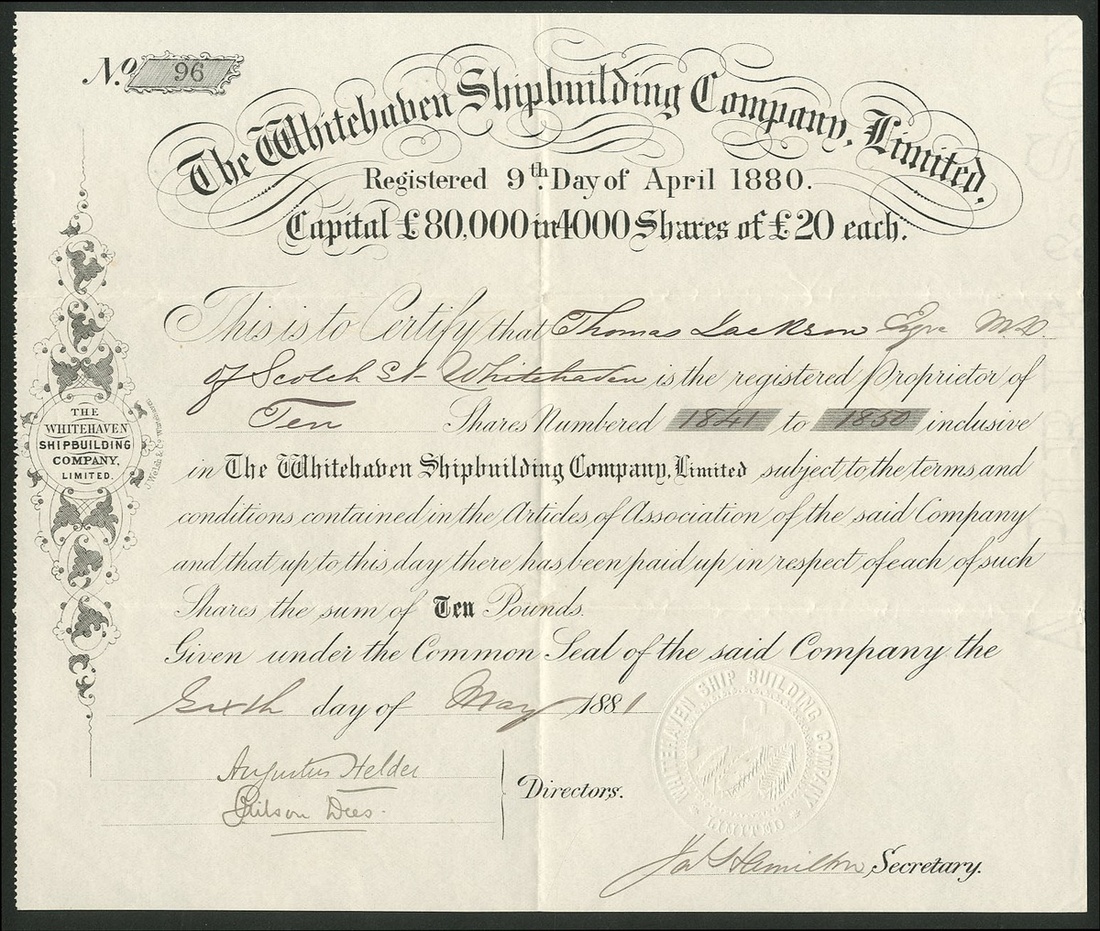 No. 96
The Whitehaven Shipbuilding Company, Limited.
Registered 9th. Day of April 1880.
Capital £80,000 in 4000 Shares of £20 each.
This is to Certify that Thomas Jackson Esqre M.D.
of Scotch St Whitehaven is the registered Proprietor of
Ten Shares Numbered 1841 to 1850 inclusive
in The Whitehaven Shipbuilding Company, Limited subject to the terms and
conditions contained in the Articles of Association of the said Company
and that up to this day there has been paid up in respect of each of such
Shares the sum of Ten Pounds.
Given under the Common Seal of the said Company the
Sixth day of May 1881
Augustus Helder
Dees.
Directors.
Hamilton Secretary.
THE
WHITEHAVEN
SHIPBUILDING
COMPANY,
LIMITED.
WHITEHAVEN SHIP BUILDING COMPANY
LIMITED